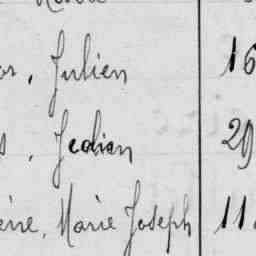 or, Julien 16
s, Jedian 29
ène, Marie Joseph 11